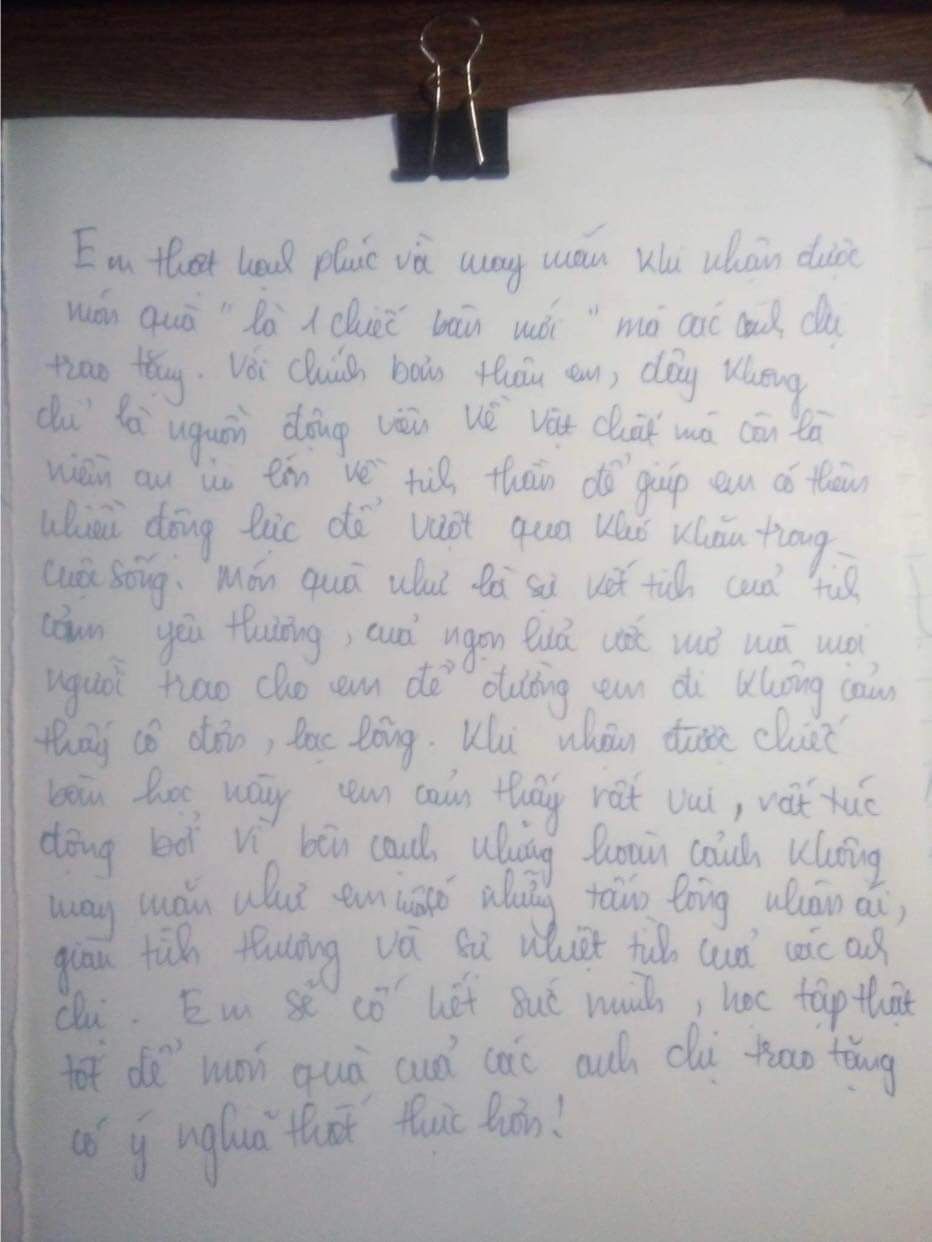 Em thật hạnh phúc và may mắn khi nhận được
món quà "là 1 chiếc bàn mới" mà các anh chị
trao tặng. Với chính bản thân em, đây không
chỉ là nguồn động viên về vật chất mà còn là
niềm an ủi lớn về tinh thần để giúp em có thêm
nhiều động lực để vượt qua khó khăn trong
cuộc sống. Món quà như là sự kết tinh của tình
cảm yêu thương, của ngọn lửa ước mơ mà mọi
người trao cho em để đường em đi không cảm
thấy cô đơn, lạc lõng. Khi nhận được chiếc
bàn học này em cảm thấy rất vui, rất xúc
động bởi vì bên cạnh những hoàn cảnh không
may mắn như em luôn có những tấm lòng nhân ái,
giàu tình thương và sự nhiệt tình của các anh
chị. Em sẽ cố hết sức mình, học tập thật
tốt để món quà của các anh chị trao tặng
có ý nghĩa thiết thực hơn!